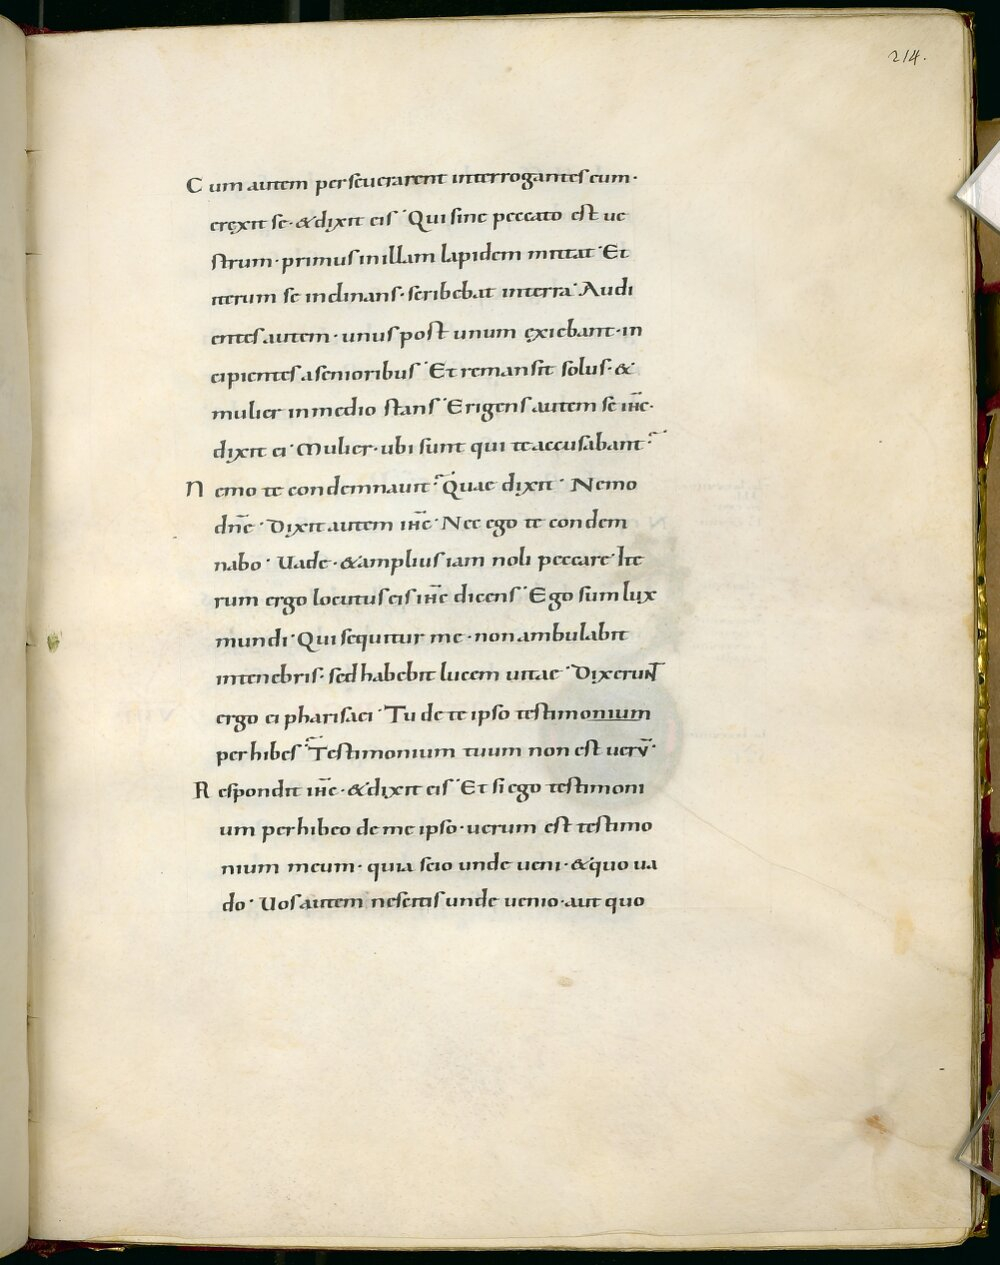 214.
Cum autem perseuerarent interrogantes eum·
erexit se·&dixit eis· Qui sine peccato est ue
strum·primus in illam lapidem mittat· Et
iterum se inclinans·scribebat in terra· Audi
entes autem·unus post unum exiebant·in
cipientes a senioribus· Et remansit solus·&
mulier in medio stans· Erigens autem se ihc̅·
dixit ei· Mulier·ubi sunt qui te accusabant?
Nemo te condemnauit? Quae dixit· Nemo
dn̅e· Dixit autem ihc̅· Nec ego te condem
nabo· Uade·&amplius iam noli peccare· Ite
rum ergo locutus eis ihc̅ dicens· Ego sum lux
mundi· Qui sequitur me·non ambulabit
in tenebris·sed habebit lucem uitae· Dixerunt
ergo ei pharisaei· Tu de te ipso testimonium
perhibes? Testimonium tuum non est ueru̅·
Respondit ihc̅·&dixit eis· Et si ego testimoni
um perhibeo de me ipso·uerum est testimo
nium meum·quia scio unde ueni·&quo ua
do· Uos autem nescitis unde uenio·aut quo